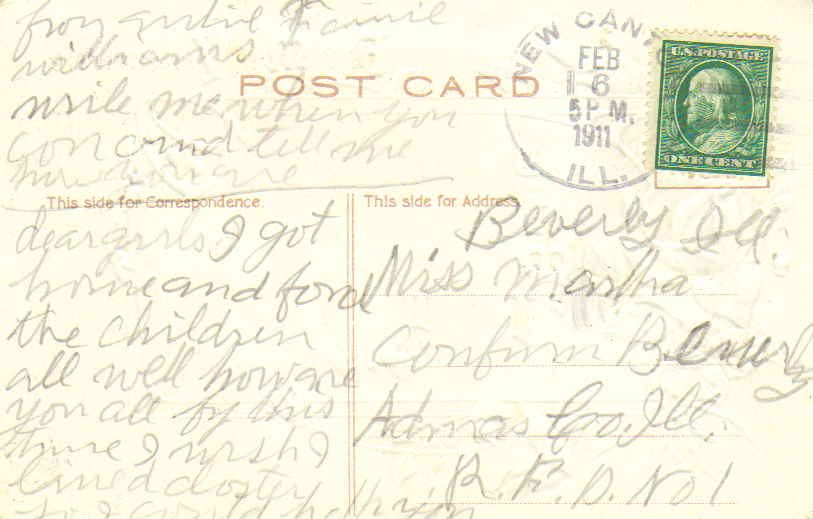 from antie Fannie
williams
write me when you
con and tell me
how you are
POST CARD
NEW CANTON
FEB
6
5 P M.
1911
ILL.
U.S. POSTAGE
ONE CENT
This side for Correspondence
dear girls I got
home and fond
the children
all well how are
you all by this
time I wish I
lived closter
so I could help you
This side for Address
Beverly Ill.
Miss Martha
Beverly
Admas Co. Ill.
R. F. D. No 1